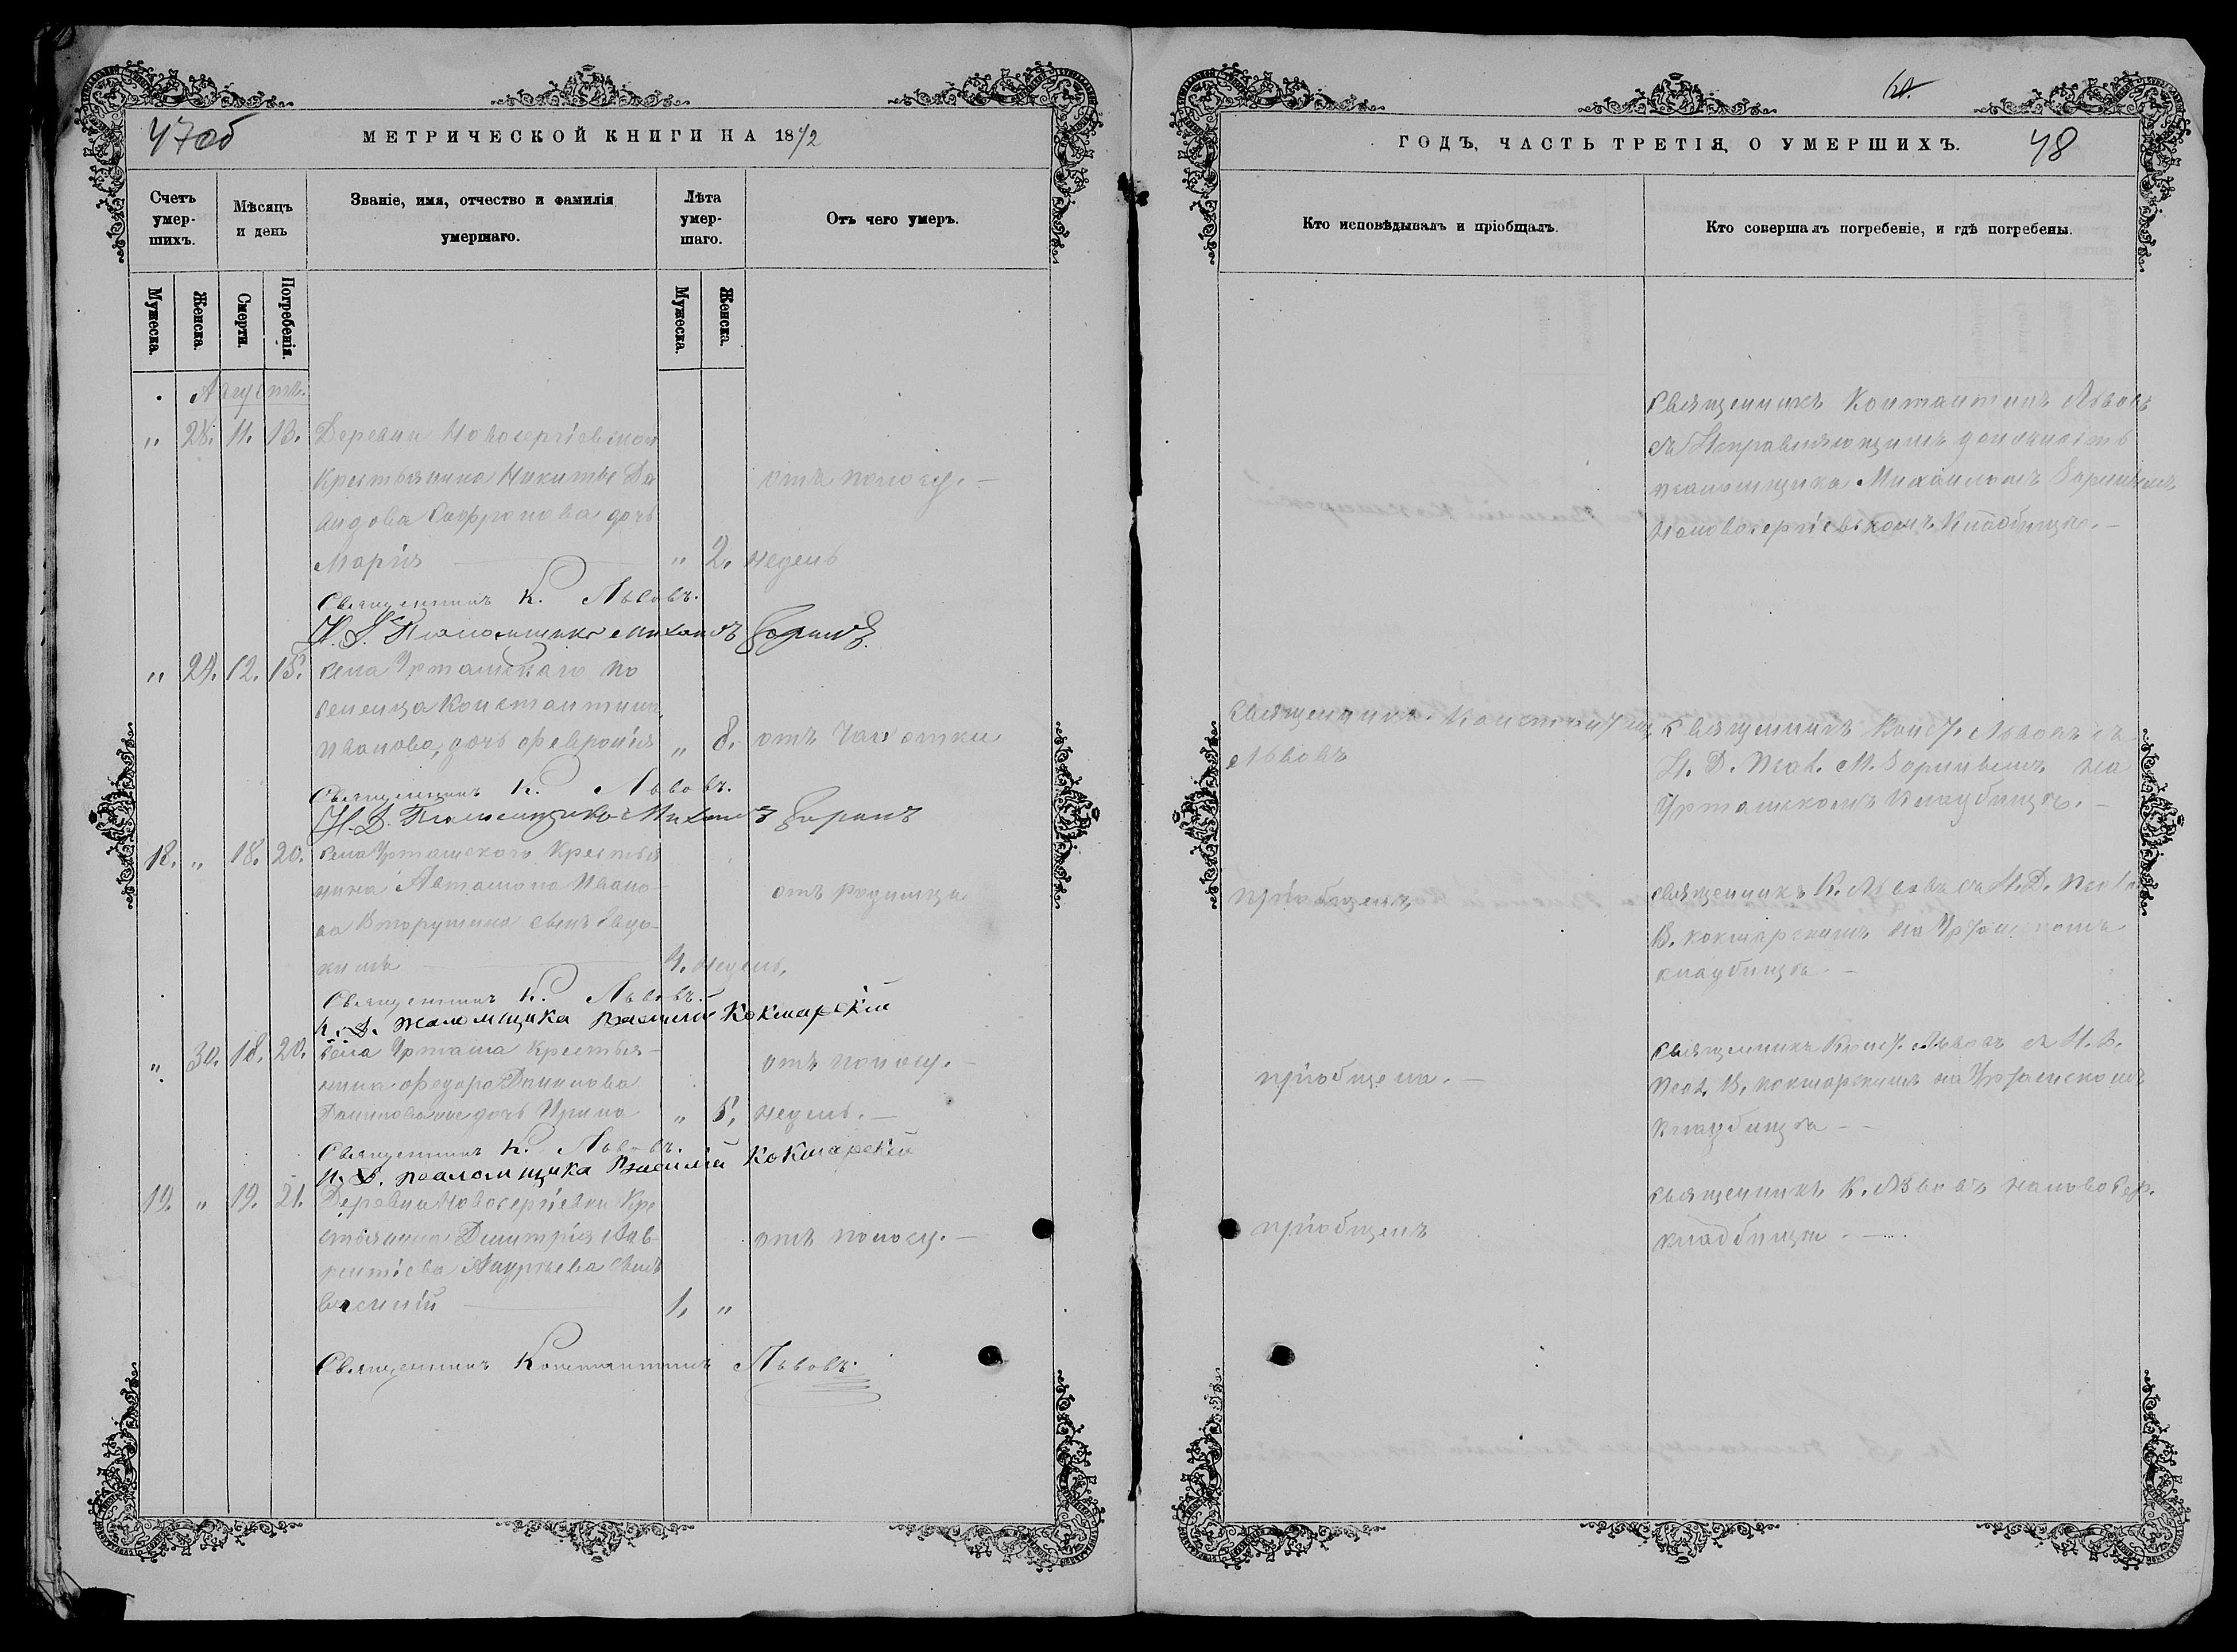 47об
МЕТРИЧЕСКОЙ КНИГИ НА 1872
Счетъ умер-шихъ.
Мѣсяцъ и день
Званіе, имя, отчество и фамилія умершаго.
Лѣта умер-шаго.
Отъ чего умеръ.
Мужеска.
Женска.
Смерти.
Погребенія.
Мужеска.
Женска.
Августъ.
„ 28. 11. 13. Деревни Новосергіевской
Крестьянина Никиты Да
отъ поносу.
видова Сафронова дочь
Марія „ 2. недель
Священникъ К. Львовъ.
И. Д. Псаломщика Михаилъ
„ 29. 12. 15. села Урташскаго по
селенца Константина
Иванова, дочь Февронія „ 8. отъ чахотки
Священникъ К. Львовъ.
И. Д. Псаломщика Михаилъ
18. „ 18. 20. села Урташскаго Крестья
нина Автамона Ивано-
отъ родимца
ва Вторушина сынъ Евдо-
кимъ 4. недель,
Священникъ К. Львовъ.
И. Д. псаломщика Василій Кокшарскій
„ 30. 18. 20. села Урташа Крестья-
отъ поносу.
нина Федора
дочь Ирина „ 5. недель.
Священникъ К. Львовъ.
И. Д. псаломщика Василій Кокшарскій
19. „ 19. 21. Деревни Новосергіевки Кре
стьянина Димитрія Лав-
отъ поносу.
рентіева сынъ
Василій 1. „
Священникъ Константинъ Львовъ.
ГОДЪ, ЧАСТЬ ТРЕТІЯ, О УМЕРШИХЪ.
48
Кто исповѣдывалъ и пріобщалъ.
Кто совершалъ погребеніе, и гдѣ погребены.
Священникъ Контантинъ Львовъ
съ Исправляющимъ должность
псаломщика Михаиломъ
Новосергіевскомъ Кладбищѣ.
Священникъ Константинъ
Львовъ
Священникъ Конст. Львовъ съ
И. Д. Псал. М. на
Урташскомъ кладбищѣ.
пріобщенъ
священникъ К. Львовъ съ И. Д. Псал.
В. Кокшарскимъ на Урташскомъ
кладбищѣ
пріобщена.
священникъ Конст. Львовъ съ И. Д.
Псал. В. Кокшарскимъ на Урташскомъ
кладбищѣ
пріобщенъ
священникъ К. Львовъ на ново Сер.
кладбищѣ.